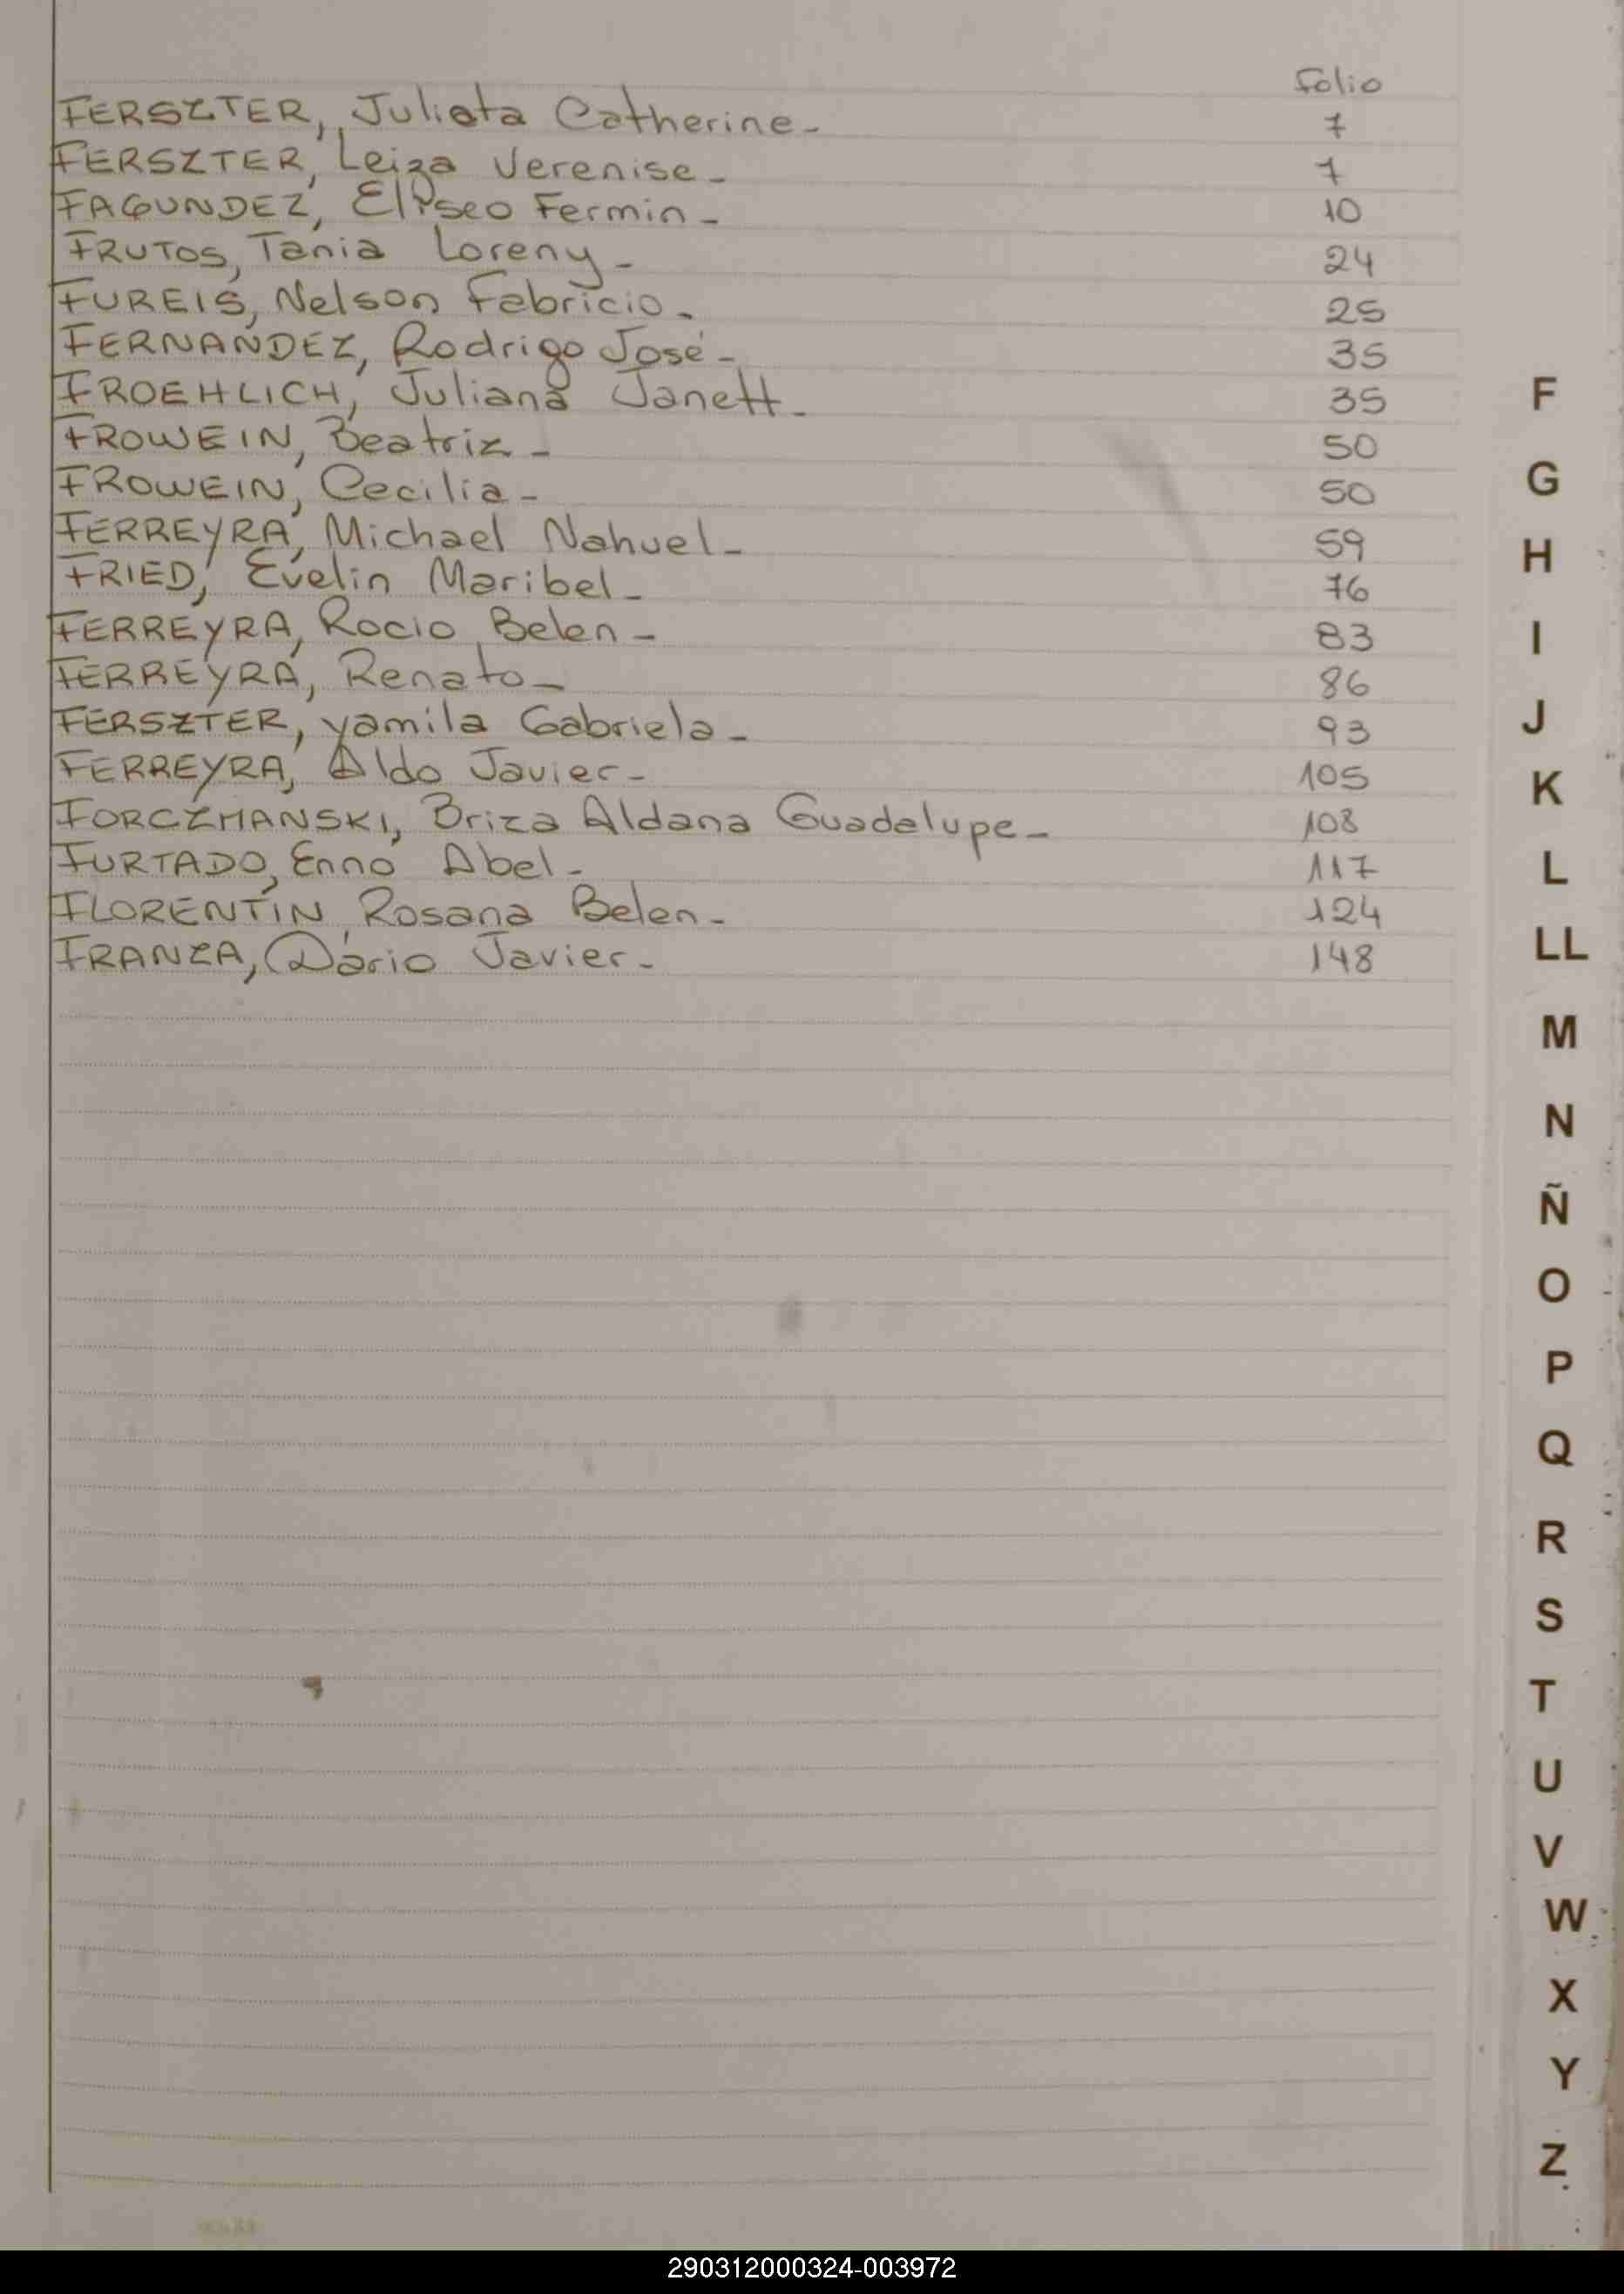 Folio
FERSZTER, Julieta Catherine- 7
FERSZTER, Leiza Verenise- 7
FAGUNDEZ, Eliseo Fermin- 10
FRUTOS, Tania Loreny- 24
FUREIS, Nelson Fabricio- 25
FERNANDEZ, Rodrigo José- 35
FROEHLICH, Juliana Janett- 35
FROWEIN, Beatriz- 50
FROWEIN, Cecilia- 50
FERREYRA, Michael Nahuel- 59
FRIED, Evelin Maribel- 76
FERREYRA, Rocio Belen- 83
FERREYRA, Renato- 86
FERSZTER, yamila Gabriela- 93
FERREYRA, Aldo Javier- 105
FORCZMANSKI, Briza Aldana Guadalupe- 108
FURTADO, Enno Abel- 117
FLORENTIN, Rosana Belen- 124
FRANZA, Dario Javier- 148
F
G
H
I
J
K
L
LL
M
N
Ñ
O
P
Q
R
S
T
U
V
W
X
Y
Z
290312000324-003972